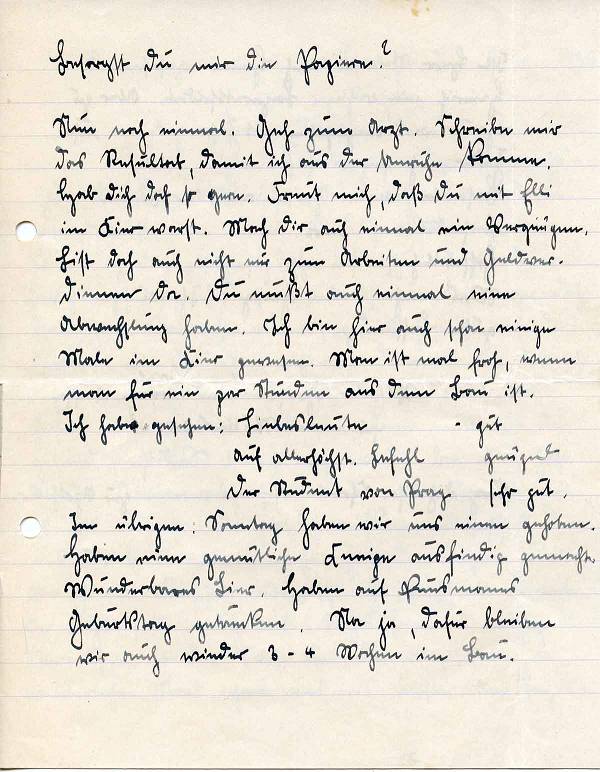 Besorgst du mir die Papiere?
Nun noch einmal. Geh zum Arzt. Schreibe mir
das Resultat, damit ich aus der Unruhe komme.
hab dich doch so gern. Freut mich, daß du mit Elli
im Kino warst. Mach dir auch einmal ein Vergnügen.
bist doch auch nicht nur zum Arbeiten und Geldver-
dienen da. Du mußt auch einmal eine
Abwechslung haben. Ich bin hier auch schon einige
Male im Kino gewesen. Man ist mal froh, wenn
man für ein par Stunden aus dem Bau ist.
Ich habe gesehen: Liebesleute - gut
auf allerhöchst. Befehl genügend
Der Student von Prag sehr gut.
Im übrigen: Sonntag haben wir uns einen gehoben.
Haben eine gemütliche Kneipe ausfindig gemacht.
Wunderbares Bier. Haben auf
Geburtstag getrunken. Na ja, dafür bleiben
wir auch wieder 3 - 4 Wochen im Bau.